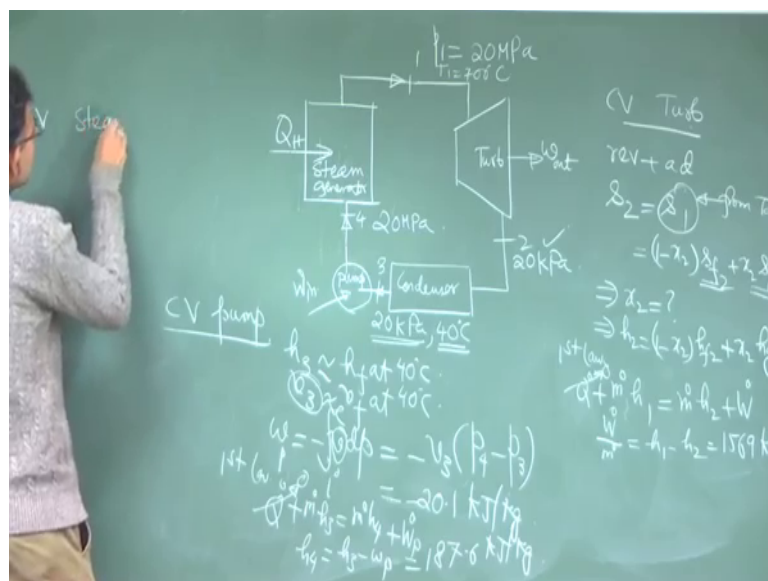 V Stea
1 P1 = 20MPa
T1=700°C
QH
Steam
generator
Turb
Wout
4 20MPa
2 ✓
20kPa
Win
pump
3
Condensor
20kPa, 40°C
CV pump
h3 ≈ hf at 40°C.
v3 ≈ vf at 40°C.
wp = -∫vdp = -v3(p4-p3)
= -20.1 kJ/kg
1st law
Q̇ + ṁh3 = ṁh4 + Ẇp
h4 = h3 - wp = 187.6 kJ/kg
CV Turb
rev + ad
s2 = s1 ← from T
= (1-x2) sf2 + x2 s
⇒ x2 = ?
⇒ h2 = (1-x2) hf2 + x2 h
1st law
Q̇ + ṁh1 = ṁh2 + Ẇ
Ẇ/ṁ = h1 - h2 = 1569 k